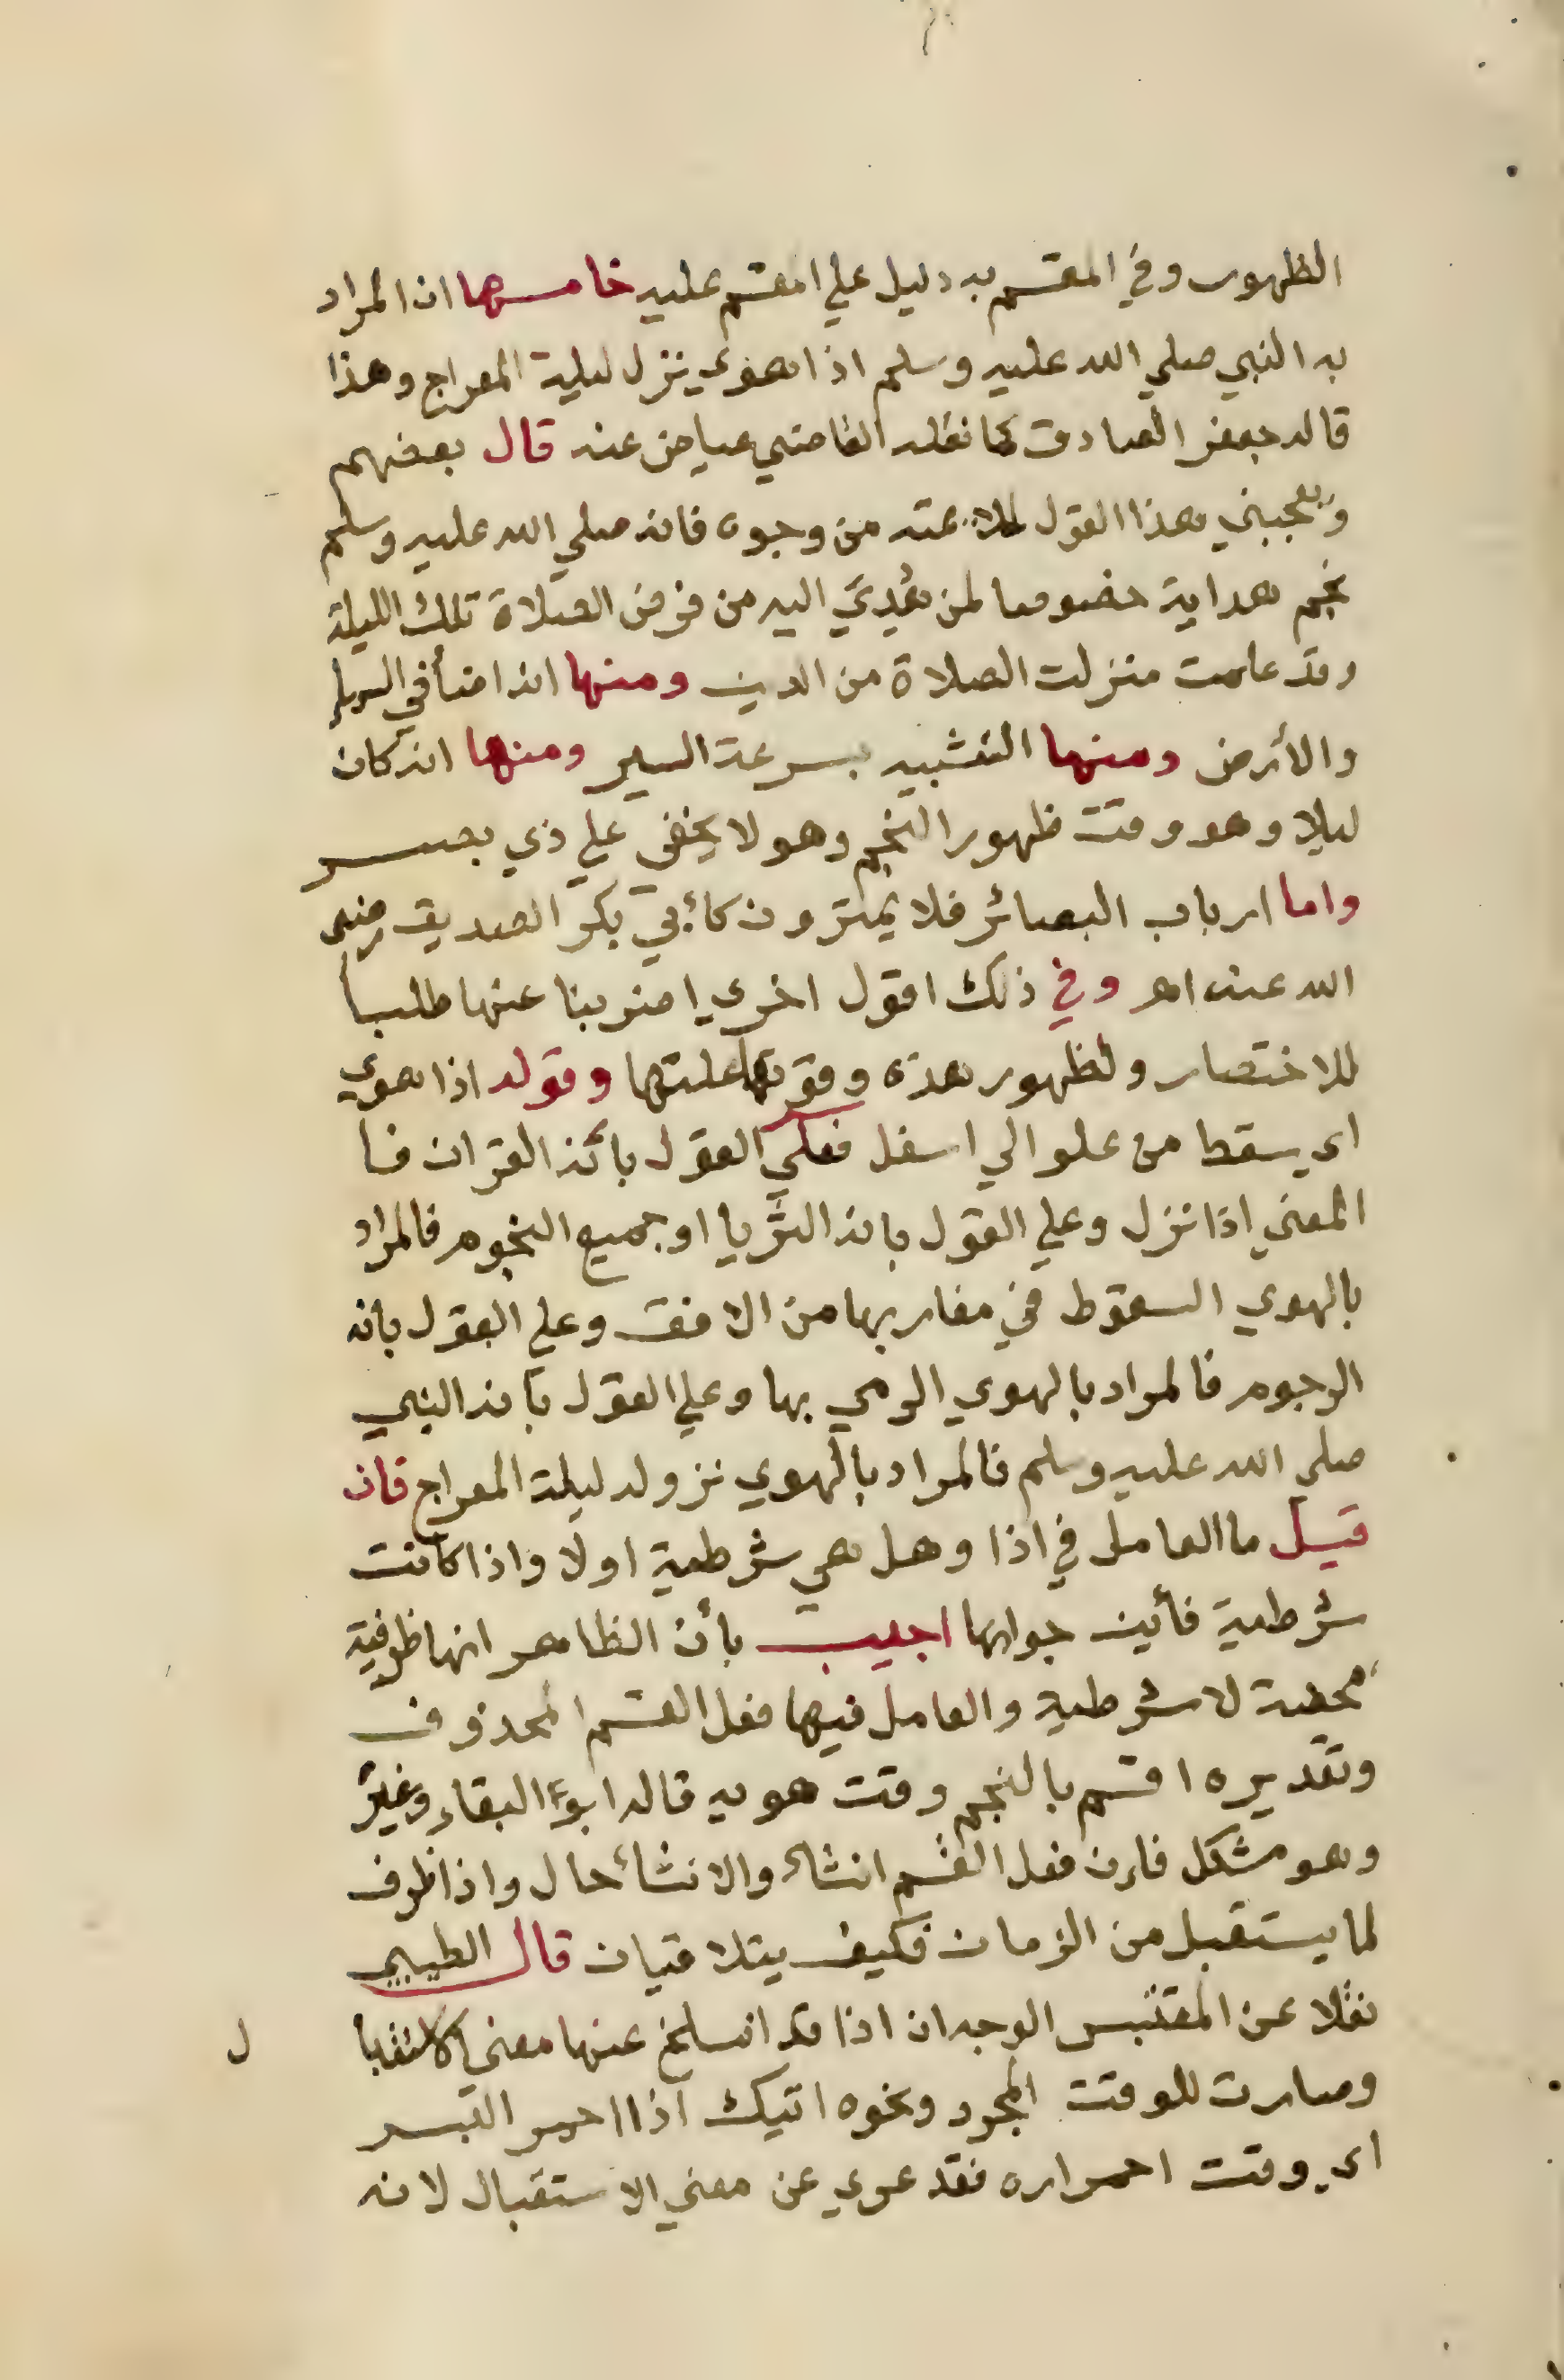 الظهور وفي المقسم به دليل علي المقسم عليه خامسها ان المراد
به النبي صلي الله عليه وسلم اذا هوي نزل ليلة المعراج وهذا
قاله جعفر الصادق كما نقله القاضي عياض عنه قال بعضهم
ويعجبني هذا القول لملائمته من وجوه فانه صلي الله عليه وسلم
نجم هداية خصوصا لمن هُدِيَ اليه من فرض الصلاة تلك الليلة
وقد علمت منزلت الصلاة من الدين ومنها انه اضأ في السماء
والأرض ومنها التشبيه بسرعة السير ومنها انه كان
ليلا وهو وقت ظهور النجم وهو لا يخفي علي ذي بصر
واما ارباب البصائر فلا يمترون كأبي بكر الصديق رضي
الله عنه اهـ وفي ذلك اقول اخري اضربنا عنها طلبا
للاختصار ولظهور هذه وقوتها علتها وقوله اذا هوي
اي سقط من علو الي اسفل فعلي القول بأنه القران فا
المعني اذا نزل وعلي القول بانه الثريا او جميع النجوم فالمراد
بالهوي السقوط في مغاربها من الافق وعلي القول بانه
الرجوم فالمراد بالهوي الرمي بها وعلي القول بأنه النبي
صلي الله عليه وسلم فالمراد بالهوي نزوله ليلة المعراج فان
قيل ما العامل في اذا وهل هي شرطية اولا واذا كانت
شرطية فأين جوابها اجيب بأن الظاهر انها ظرفية
محضة لا شرطية والعامل فيها فعل القسم المحذوف
وتقديره اقسم بالنجم وقت هويه قاله ابو البقاء وغيره
وهو مشكل فان فعل القسم انشاء والانشأ حال واذا ظرف
لما يستقبل من الزمان فكيف يتلاقيان قال الطيبي
نقلا عن المقتبس الوجه ان اذا قد انسلخ عنها معني الاستقبا
ل
وصارت للوقت المجرد ونحوه اتيك اذا احمر البسر
اي وقت احمراره فقد عري عن معني الاستقبال لانه